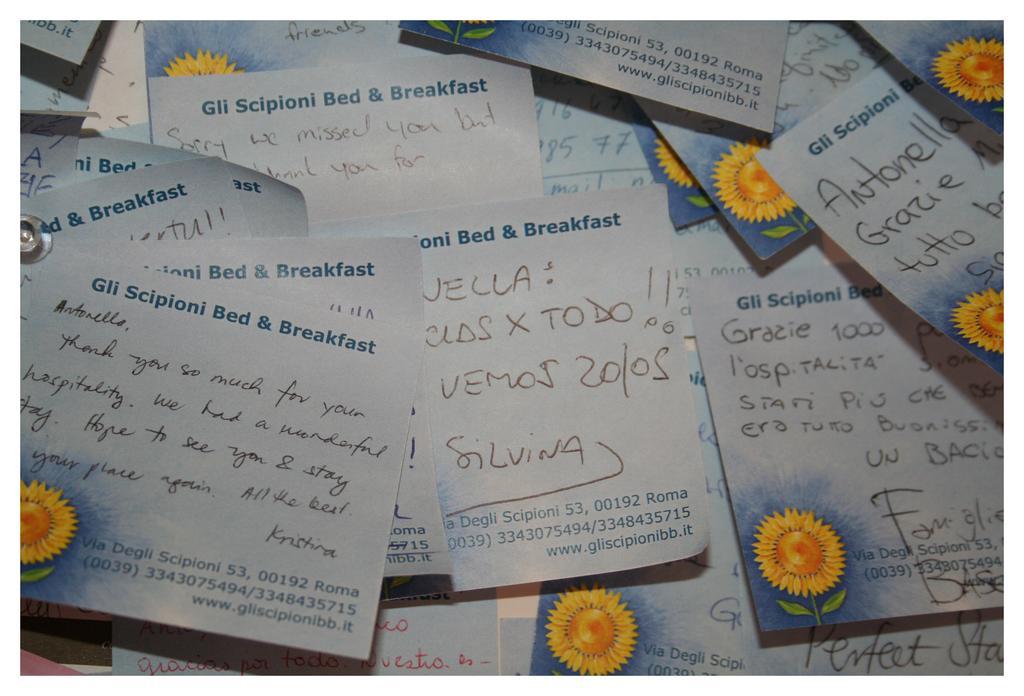 ibb.it
friends
Gli Scipioni Bed & Breakfast
Sorry we missed you but
you for
Degli Scipioni 53, 00192 Roma
(0039) 3343075494/3348435715
www.gliscipionibb.it
85 77
mail:
Gli Scipioni Be
Antonella
Grazie
tutto
ni Bed
ast
d & Breakfast
!!
ioni Bed & Breakfast
Gli Scipioni Bed & Breakfast
Antonella,
Thank you so much for your
hospitality. We had a wonderful
tay. Hope to see you & stay
your place again. All the best.
Kristina
Via Degli Scipioni 53, 00192 Roma
(0039) 3343075494/3348435715
www.gliscipionibb.it
ioni Bed & Breakfast
NELLA:
CIAS X TODO !!
VEMOS 20/05
SILVINA
a Degli Scipioni 53, 00192 Roma
0039) 3343075494/3348435715
www.gliscipionibb.it
oma
5715
ibb.it
Gli Scipioni Bed
Grazie 1000
l'OSPITALITA'
STATI PIÙ CHE BEN
ERA TUTTO BUONISSI
UN BACIO
Famiglia
Via Degli Scipioni 53,
(0039) 3343075
gracias por todo. Nuestra es-
Via Degli Scipi
(0039)
Perfect Sta